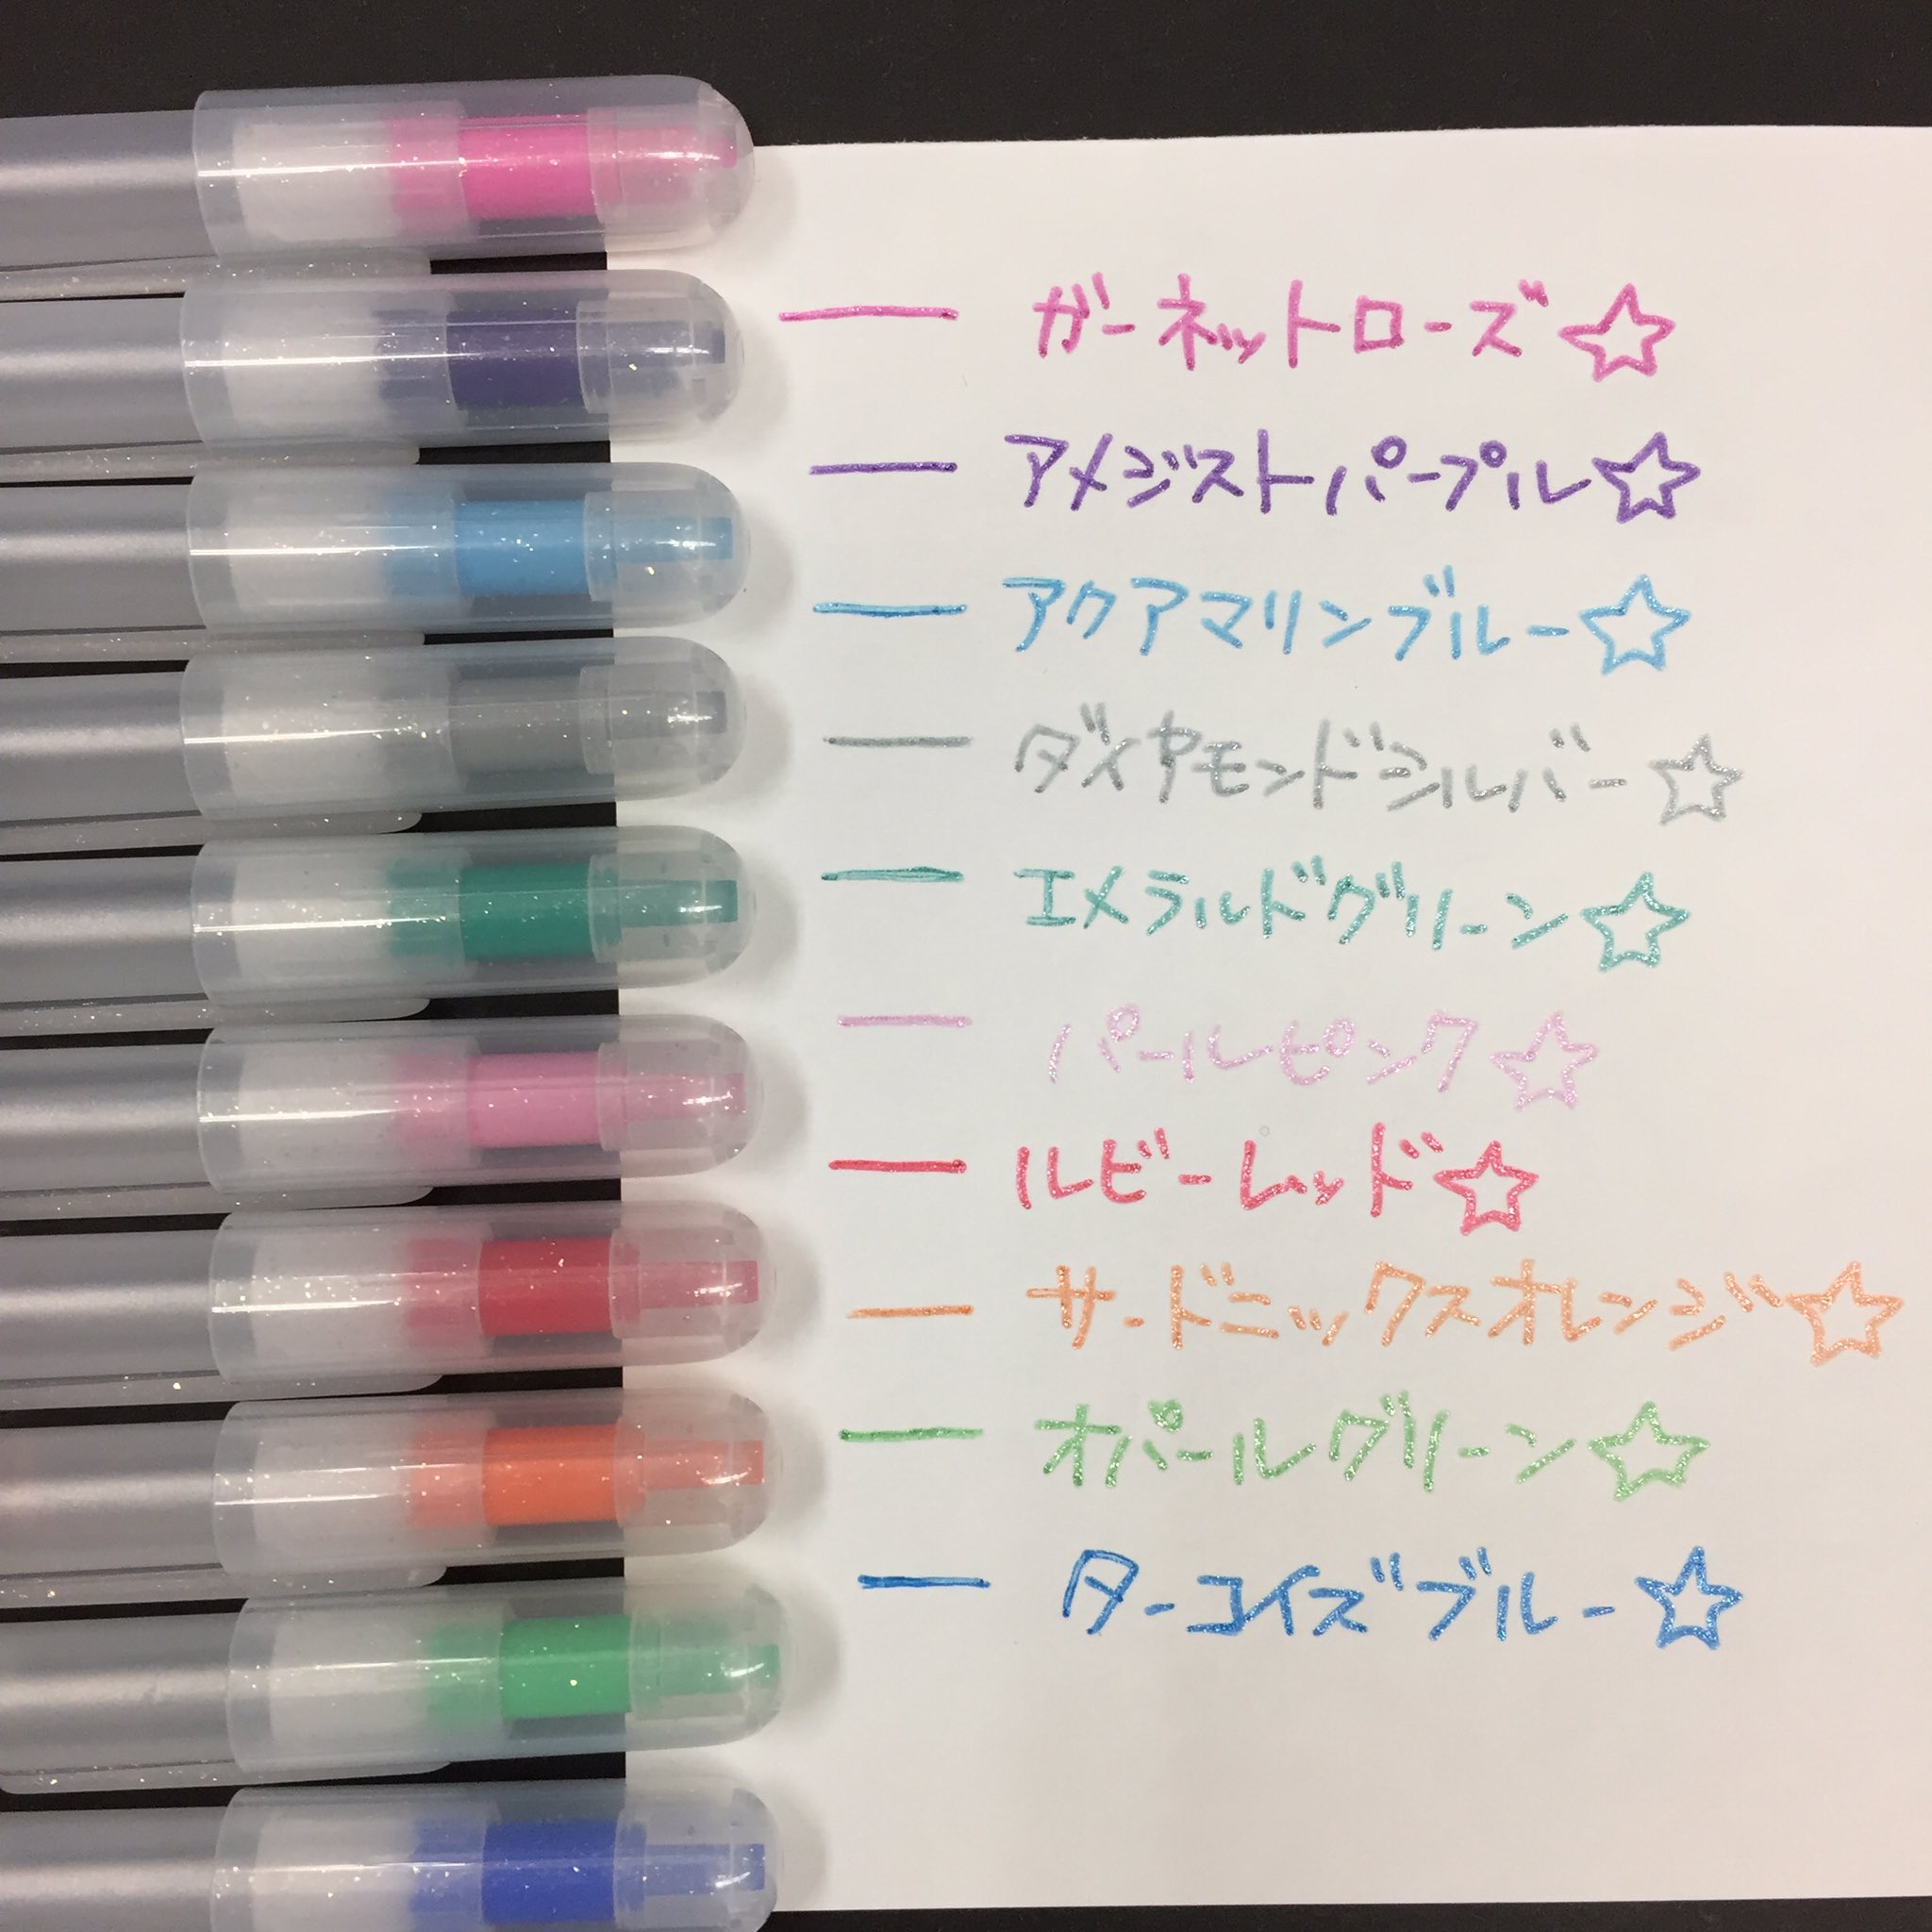 ガーネットローズ☆
アメジストパープル☆
アクアマリンブルー☆
ダイヤモンドシルバー☆
エメラルドグリーン☆
パールピンク☆
ルビーレッド☆
サードニックスオレンジ☆
オパールグリーン☆
ターコイズブルー☆